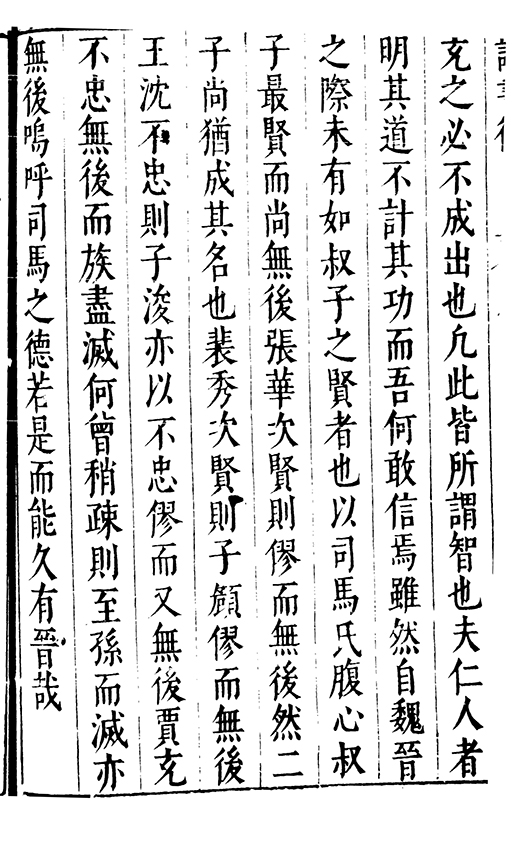 充之必不成出也凢此皆所謂智也夫仁人者
明其道不計其功而吾何敢信焉雖然自魏晉
之際未有如叔子之賢者也以司馬氏腹心叔
子最賢而尚無後張華次賢則僇而無後然二
子尚猶成其名也裴秀次賢則子頠僇而無後
王沈不忠則子浚亦以不忠僇而又無後賈充
不忠無後而族盡滅何曾稍疎則至孫而滅亦
無後嗚呼司馬之德若是而能久有晉哉